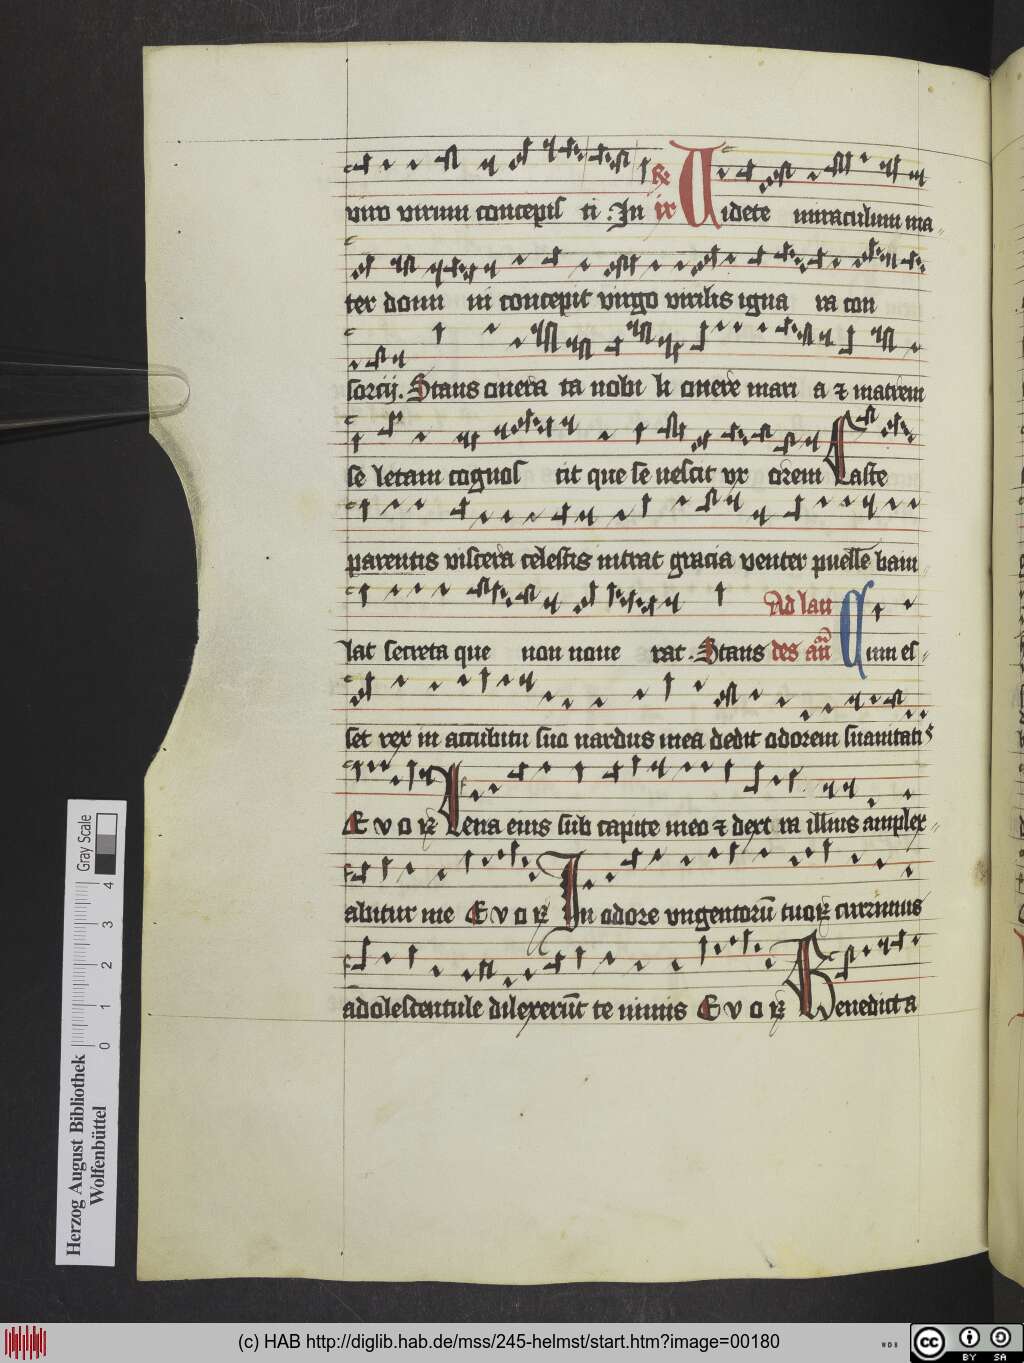 viro virum concepis ti . In ℟ ix Uidete miraculum ma
ter domi ni concepit virgo virilis igna ra con
sorcij. Stans onera ta nobi li onere mari a ⁊ matrem
se letam cognos cit que se nescit vx orem Caste
parentis viscera celestis intrat gracia venter puelle baiu
lat secreta que non noue rat. Stans Ad lau des añ Cum es
set rex in accubitu suo nardus mea dedit odorem suauitatis
E v o v Leua eius sub capite meo ⁊ dext ra illius amplex
abitur me E v o v In odore vngentorū tuoꝝ currimus
adolescentule dilexerūt te nimis E v o v Benedicta
Herzog August Bibliothek
Wolfenbüttel
0 1 2 3 4
Gray Scale
(c) HAB http://diglib.hab.de/mss/245-helmst/start.htm?image=00180
WDB
cc BY SA